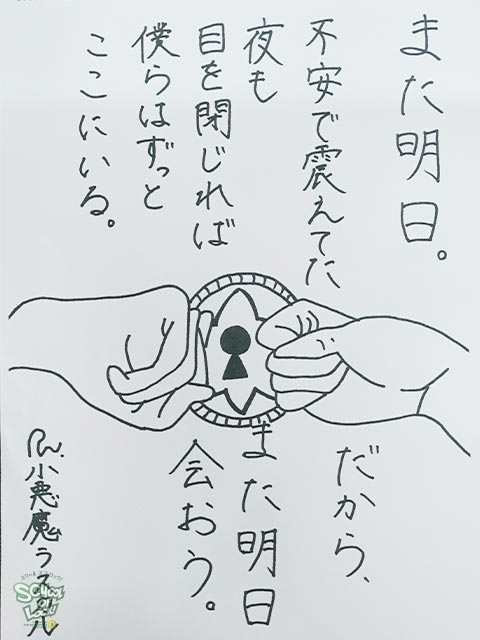 また明日。
不安で震えてた
夜も
目を閉じれば
僕らはずっと
ここにいる。
だから、
また明日
会おう。
RN.小悪魔ラスカル
SCHOOL OF LOCK!